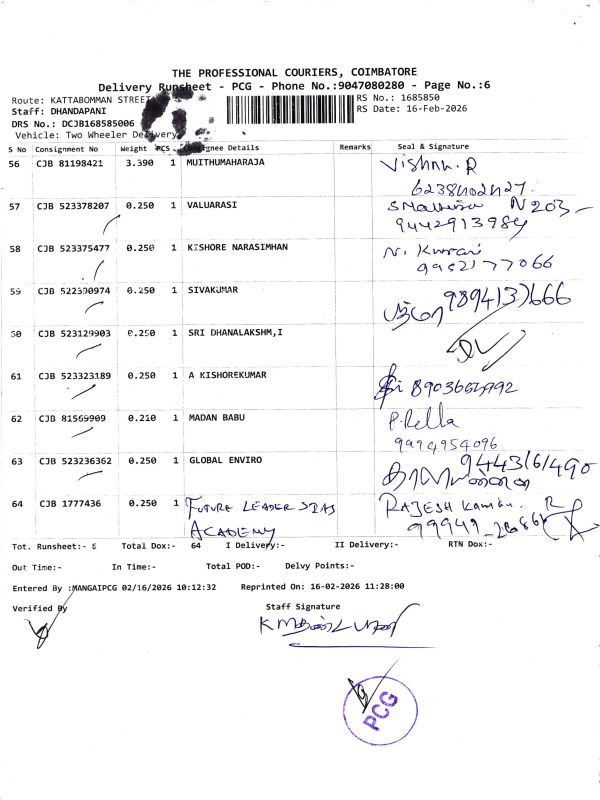 THE PROFESSIONAL COURIERS, COIMBATORE
Delivery Runsheet - PCG - Phone No.:9047080280 - Page No.:6
Route: KATTABOMMAN STREET
RS No.: 1685850
Staff: DHANDAPANI
RS Date: 16-Feb-2026
DRS No.: DCJB168585006
Vehicle: Two Wheeler Delivery
S No Consignment No Weight PCS. Consignee Details Remarks Seal & Signature
56 CJB 81198421 3.390 1 MUITHUMAHARAJA Vishnu. R
57 CJB 523378207 0.250 1 VALUARASI N203
9442913984
58 CJB 523375477 0.250 1 KISHORE NARASIMHAN N. Kumar
9962177066
59 CJB 522390974 0.250 1 SIVAKUMAR 9894137666
60 CJB 523129903 0.250 1 SRI DHANALAKSHM,I
61 CJB 523323189 0.250 1 A KISHOREKUMAR
62 CJB 81569909 0.210 1 MADAN BABU P. Rella
9994954096
63 CJB 523236362 0.250 1 GLOBAL ENVIRO 9443161490
64 CJB 1777436 0.250 1 FUTURE LEADERS IAS RAJESH Kannan. R
ACADEMY
Tot. Runsheet:- 6 Total Dox:- 64 I Delivery:- II Delivery:- RTN Dox:-
Out Time:- In Time:- Total POD:- Delvy Points:-
Entered By :MANGAIPCG 02/16/2026 10:12:32 Reprinted On: 16-02-2026 11:28:00
Verified By Staff Signature
PCG